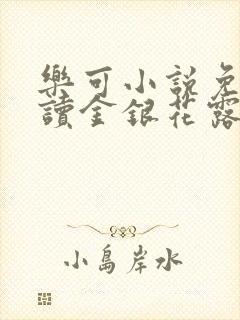 樂可小說免
讀金銀花露
小島岸水